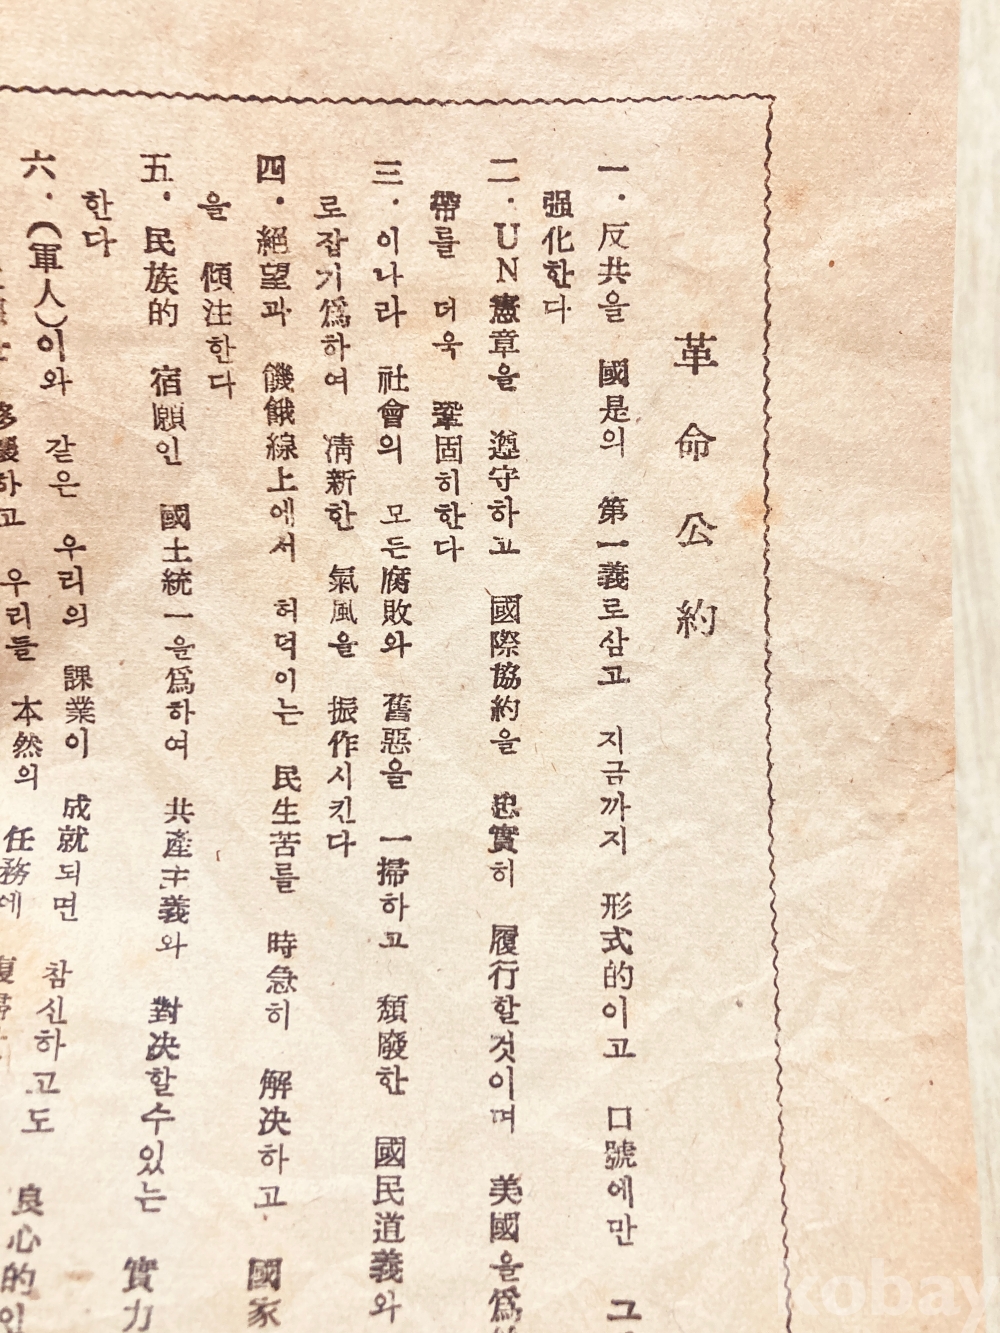 革命公約
一. 反共을 國是의 第一義로삼고 지금까지 形式的이고 口號에만 그
强化한다
二. UN憲章을 遵守하고 國際協約을 忠實히 履行할것이며 美國을爲
帶를 더욱 鞏固히한다
三. 이나라 社會의 모든腐敗와 舊惡을 一掃하고 頽廢한 國民道義와
로잡기爲하여 淸新한 氣風을 振作시킨다
四. 絕望과 饑餓線上에서 허덕이는 民生苦를 時急히 解決하고 國家
을 傾注한다
五. 民族的 宿願인 國土統一을爲하여 共產主義와 對決할수있는 實力
한다
六. (軍人)이와 같은 우리의 課業이 成就되면 참신하고도 良心的인
하고 우리들 本然의 任務에
kobay